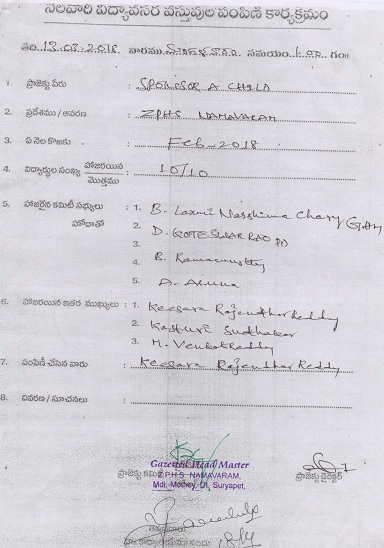 నెలవారి విద్యావసర వస్తువుల పంపిణీ కార్యక్రమం
తేది. 13-03-2018. వారము సమయం 1.00 గం॥
1. ప్రాజెక్టు పేరు : SPONSOR A CHILD
2. ప్రదేశము / ఆవరణ : ZPHS NAMAVARAM
3. ఏ నెల కొఱకు : Feb-2018
4. విద్యార్థుల సంఖ్య హాజరయిన / మొత్తము : 10/10
5. హాజరైన కమిటీ సభ్యులు : 1. B. Laxmi Narshima Chary
హోదాతో 2. D. KOTESWAR RAO PD
3. B. Ramamurthy
4. A. Aruna
5.
6. హాజరయిన ఇతర ముఖ్యులు : 1. Keesara Rajendhar Reddy
2. Kasturi Sudhakar
3. M. Venkat Reddy
7. పంపిణీ చేసిన వారు : Keesara Rajendhar Reddy
8. వివరణ / సూచనలు :
Gazetted Head Master
ప్రాజెక్టు కమిటీ Z.P.H.S. NAMAVARAM, ప్రాజెక్టు డైరెక్టర్
Mdl. Mothey, Dt. Suryapet,